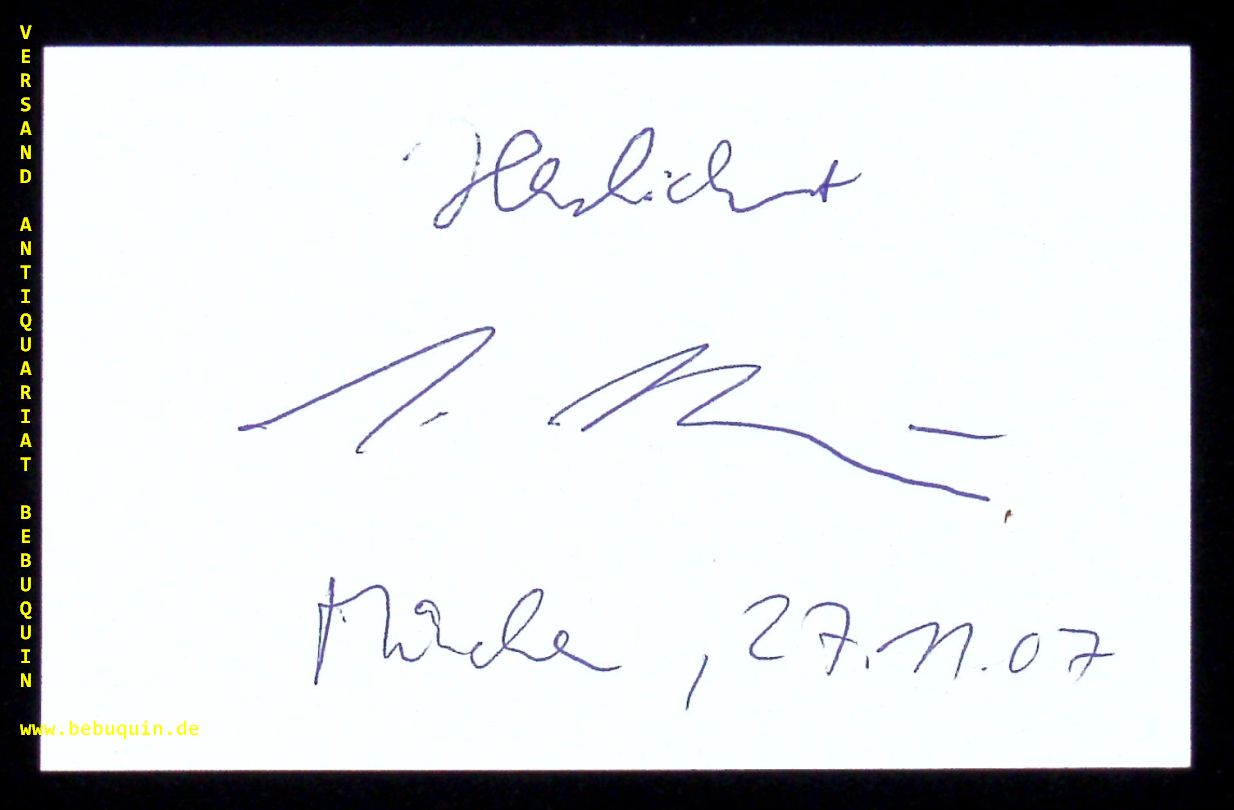 VERSAND ANTIQUARIAT BEBUQUIN
Herzlichst
München, 27.11.07
www.bebuquin.de